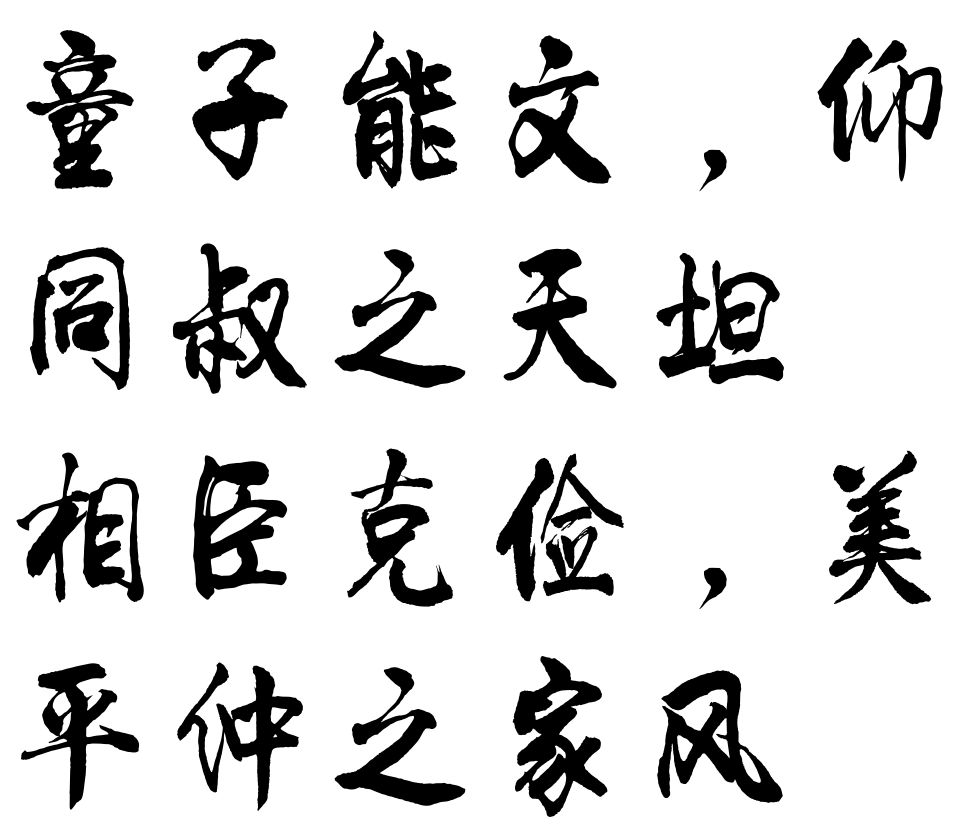 童子能文，仰
同叔之天坦
相臣克俭，美
平仲之家风